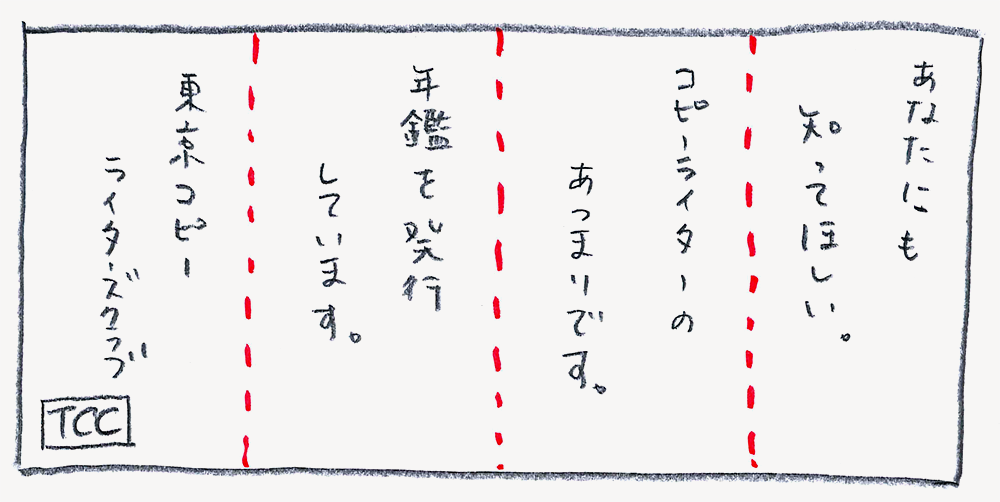 あなたにも
知ってほしい。
コピーライターの
あつまりです。
年鑑を発行
しています。
東京コピー
ライターズクラブ
TCC